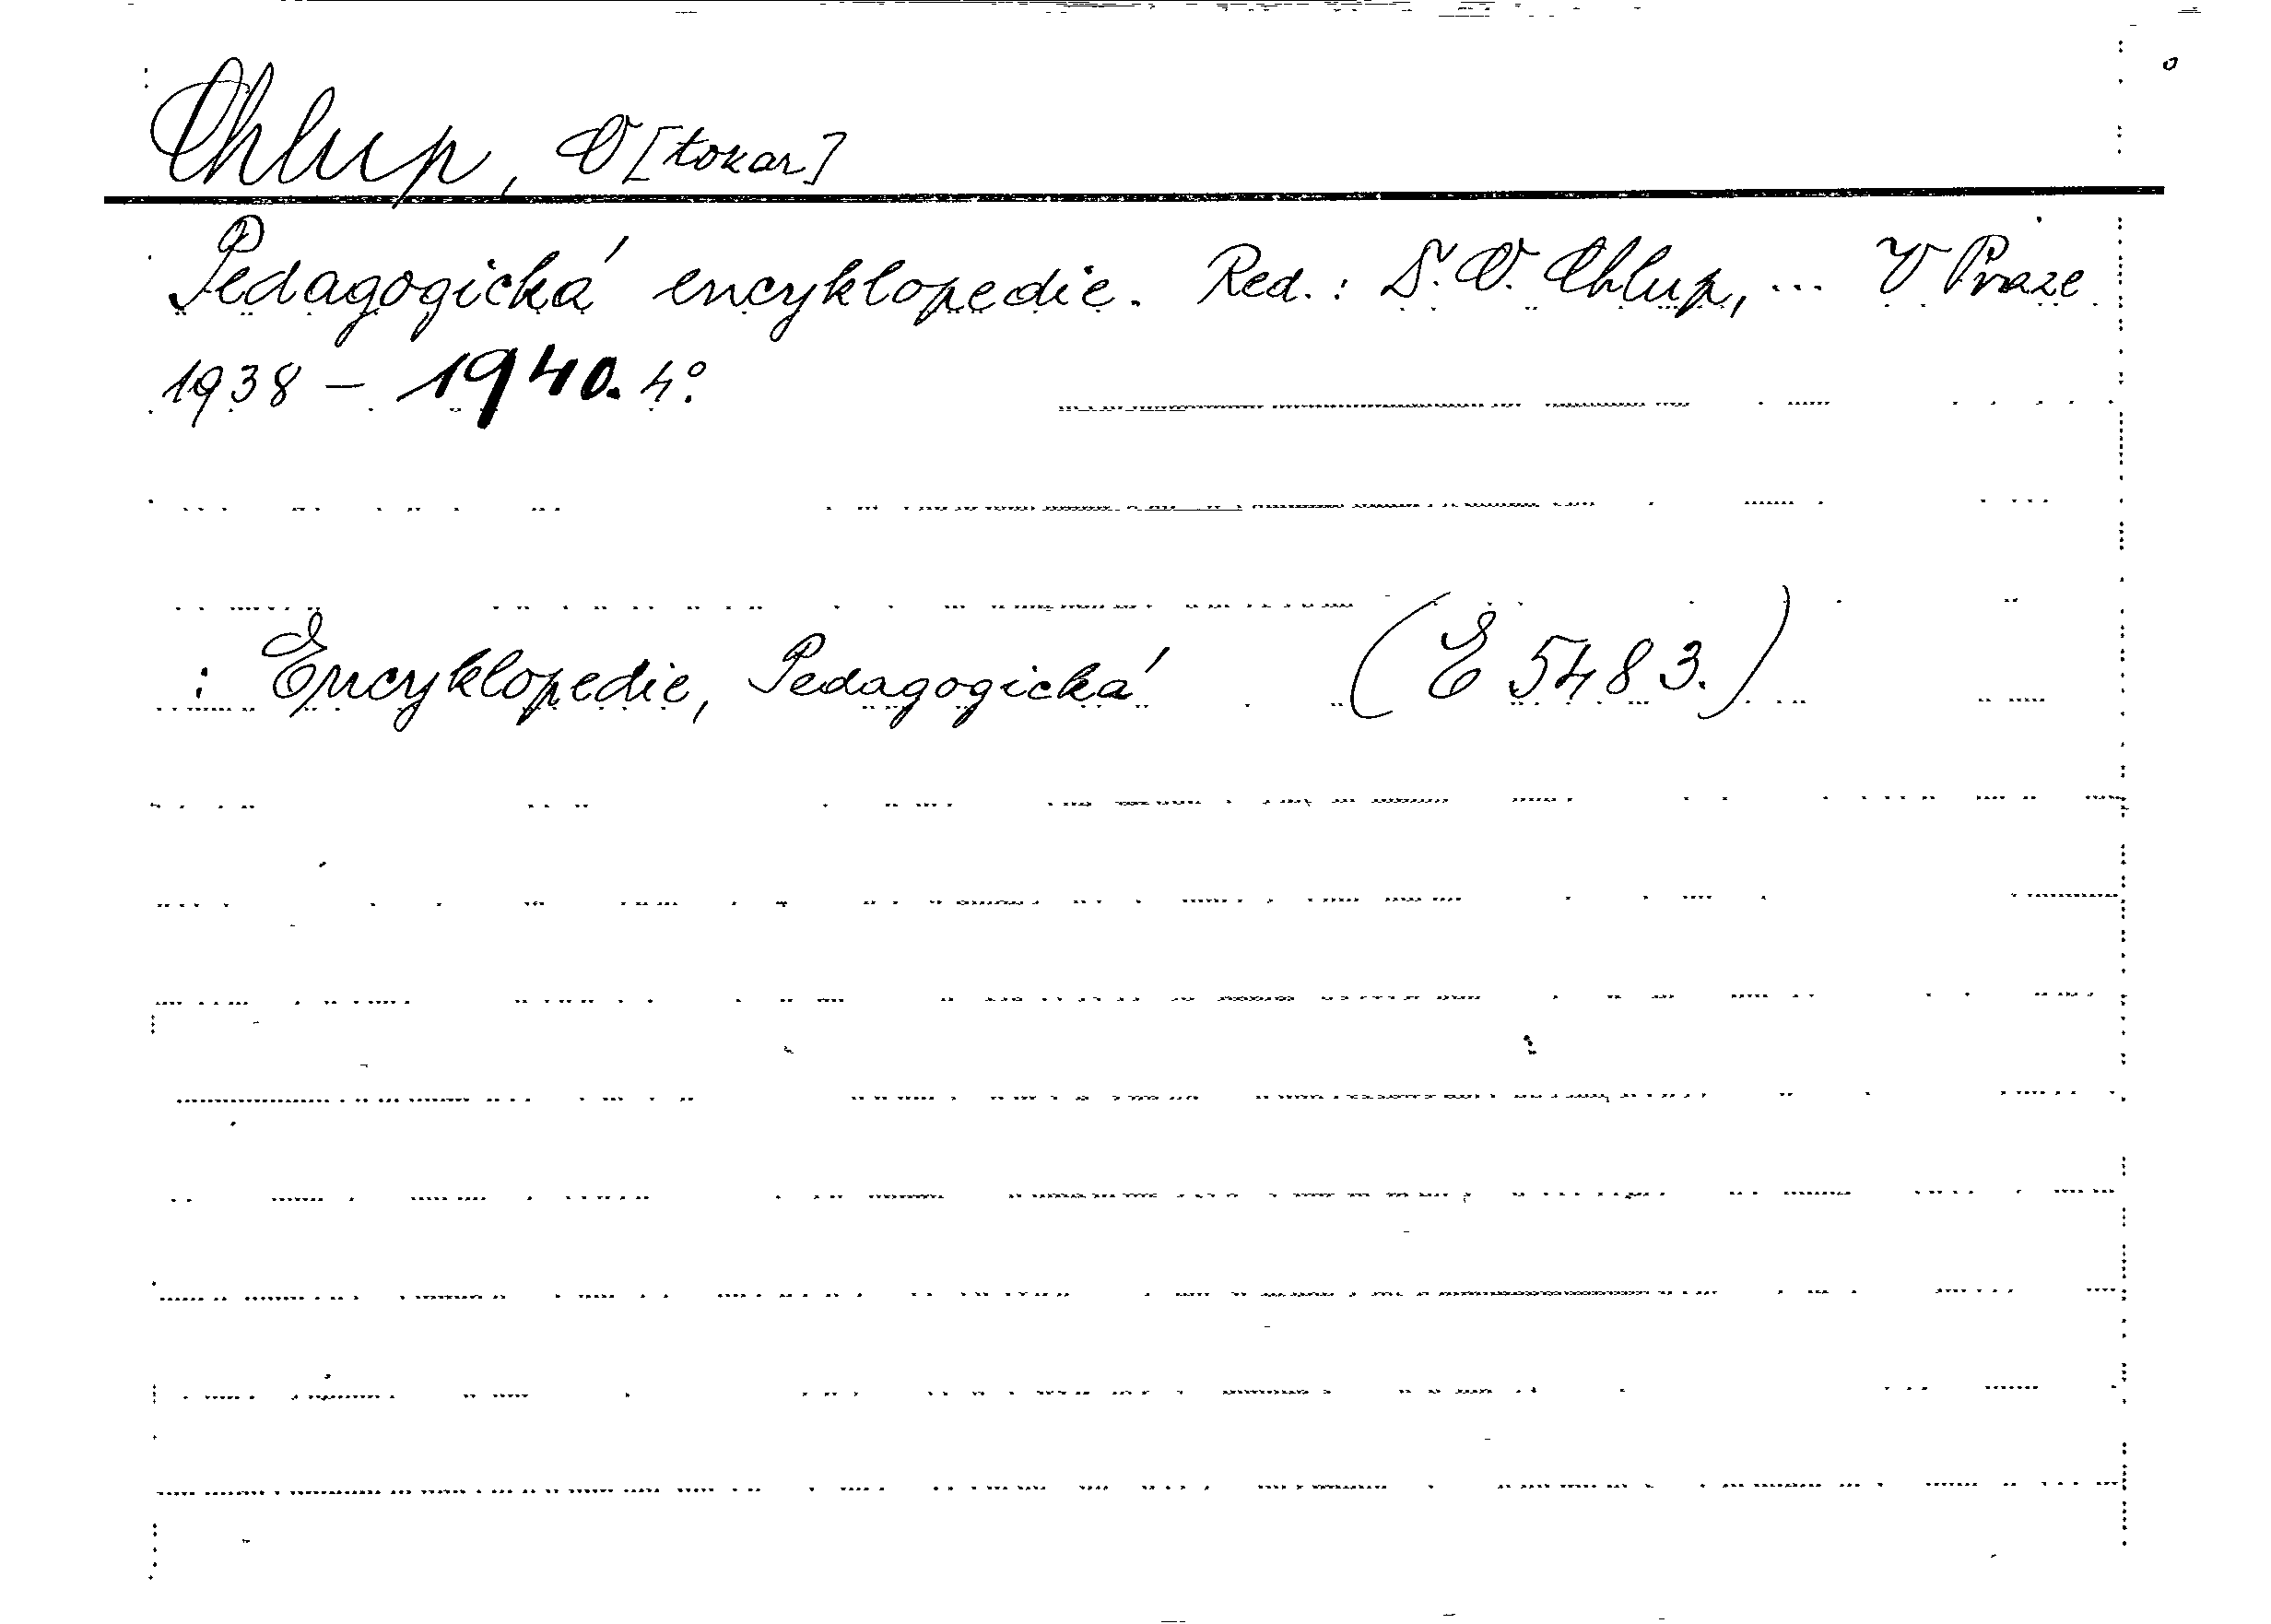 Chlup, O[tokar]
Pedagogická encyklopedie. Red.: D. O. Chlup, ... V Praze
1938 - 1940. 4°.
: Encyklopedie, Pedagogická (E 5483.)